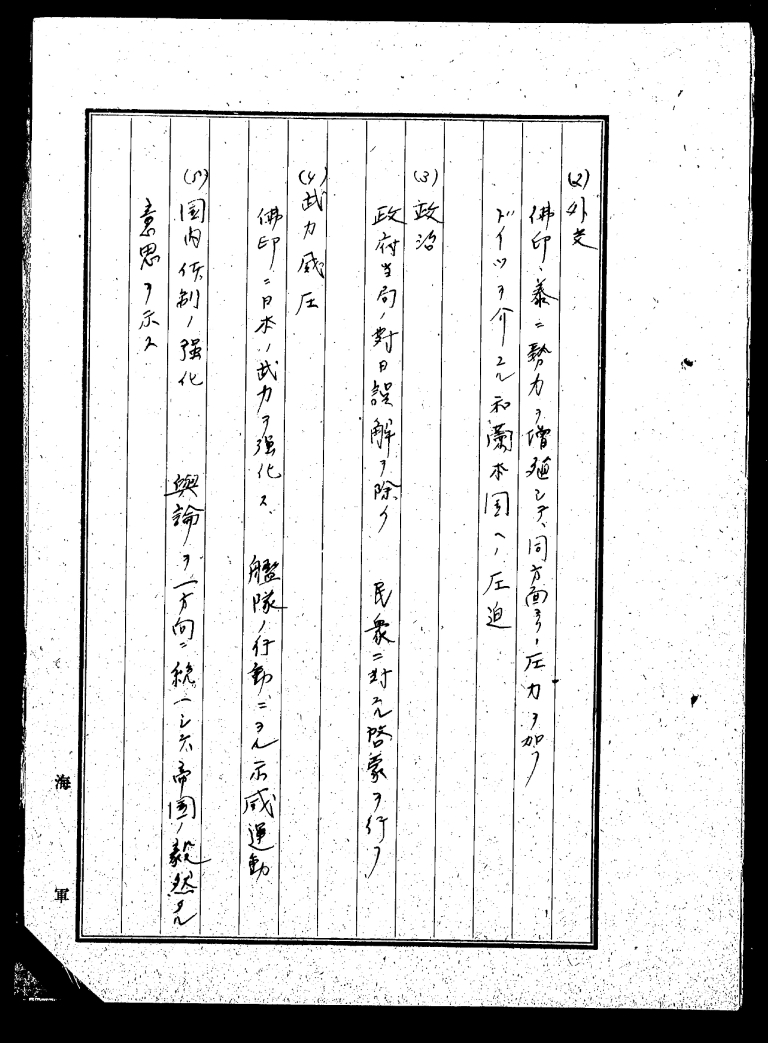 (2)外交
佛印、泰ニ勢力ヲ増殖シテ、同方面ヨリノ圧力ヲ加フ
ドイツヲ介スル和蘭本国ヘノ圧迫
(3)政治
政府当局ノ對日誤解ヲ除ク 民衆ニ対スル啓蒙ヲ行フ
(4)武力威圧
佛印ニ日本ノ武力ヲ强化ス、 艦隊ノ行動ニヨル示威運動
(5)国内体制ノ强化 與論ヲ一方向ニ統一シ 帝国ノ毅然タル
意思ヲ示ス
海軍